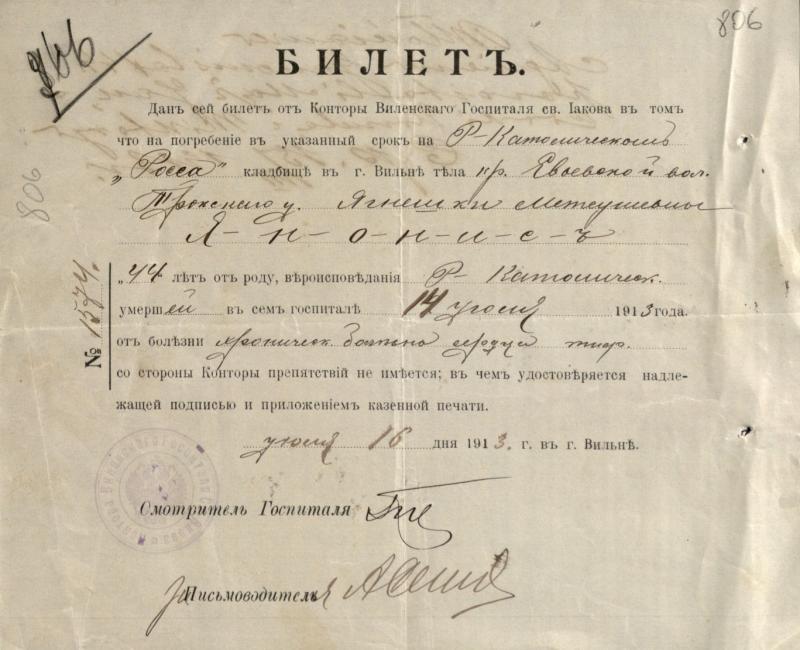 806
866
БИЛЕТЪ.
Данъ сей билетъ отъ Конторы Виленскаго Госпиталя св. Іакова въ томъ
что на погребеніе въ указанный срокъ на Р-Католическомъ
„Росса" кладбищѣ въ г. Вильнѣ тѣла кр. Евьевской вол.
Трокскаго у. Ягнешки
Я-н-о-н-и-с-ъ
806
№ 1574.
„44 лѣтъ отъ роду, вѣроисповѣданія Р-Католическ.
умершей въ семъ госпиталѣ 14 іюля 1913 года.
отъ болѣзни хроническ. сердца
со стороны Конторы препятствій не имѣется; въ чемъ удостовѣряется надле-
жащей подписью и приложеніемъ казенной печати.
іюля 16 дня 1913. г. въ г. Вильнѣ.
Смотритель Госпиталя
за Письмоводителя